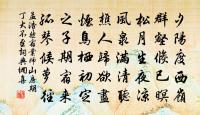 夕陽度西嶺
群壑倏已暝
松月生夜凉
風泉滿清聽
樵人歸欲盡
煙鳥棲初定
之子期宿來
孤琴候蘿徑
孟浩然宿業師山房期
丁大不至詞典網